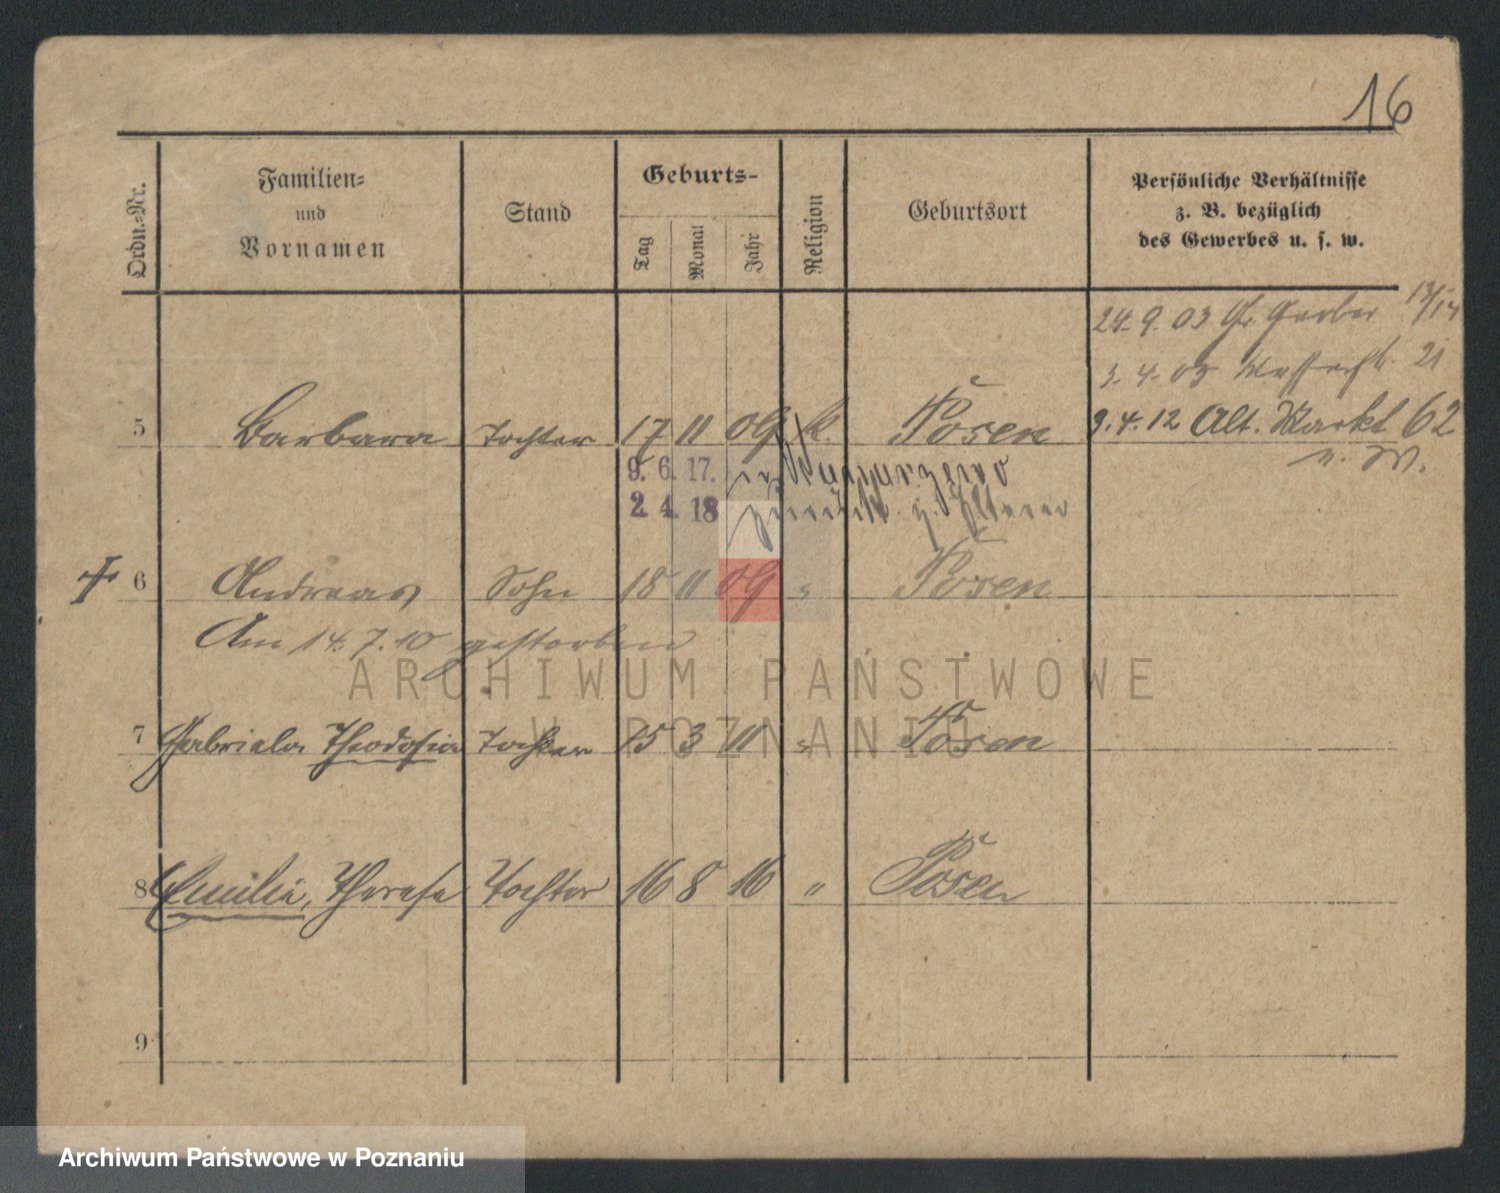 16
Ordn.=Nr.
Familien=
und
Vornamen
Stand
Geburts=
Tag
Monat
Jahr
Religion
Geburtsort
Persönliche Verhältnisse
z. B. bezüglich
des Gewerbes u. s. w.
24.9.03 Gr. Gerber 13/14
3.4.05 21
5 Barbara Tochter 17 11 09 k. Posen 9.4.12 Alt. Markt 62
u. W.
9. 6. 17.
2. 4. 18 zurück z. Eltern
6 Andreas Sohn 18 11 09 " Posen
Am 14.7.10 gestorben
ARCHIWUM PAŃSTWOWE
W POZNANIU
7 Gabriela Theodosia Tochter 15 3 11 " Posen
8 Emilie, Therese Tochter 16 8 16 " Posen
9
Archiwum Państwowe w Poznaniu